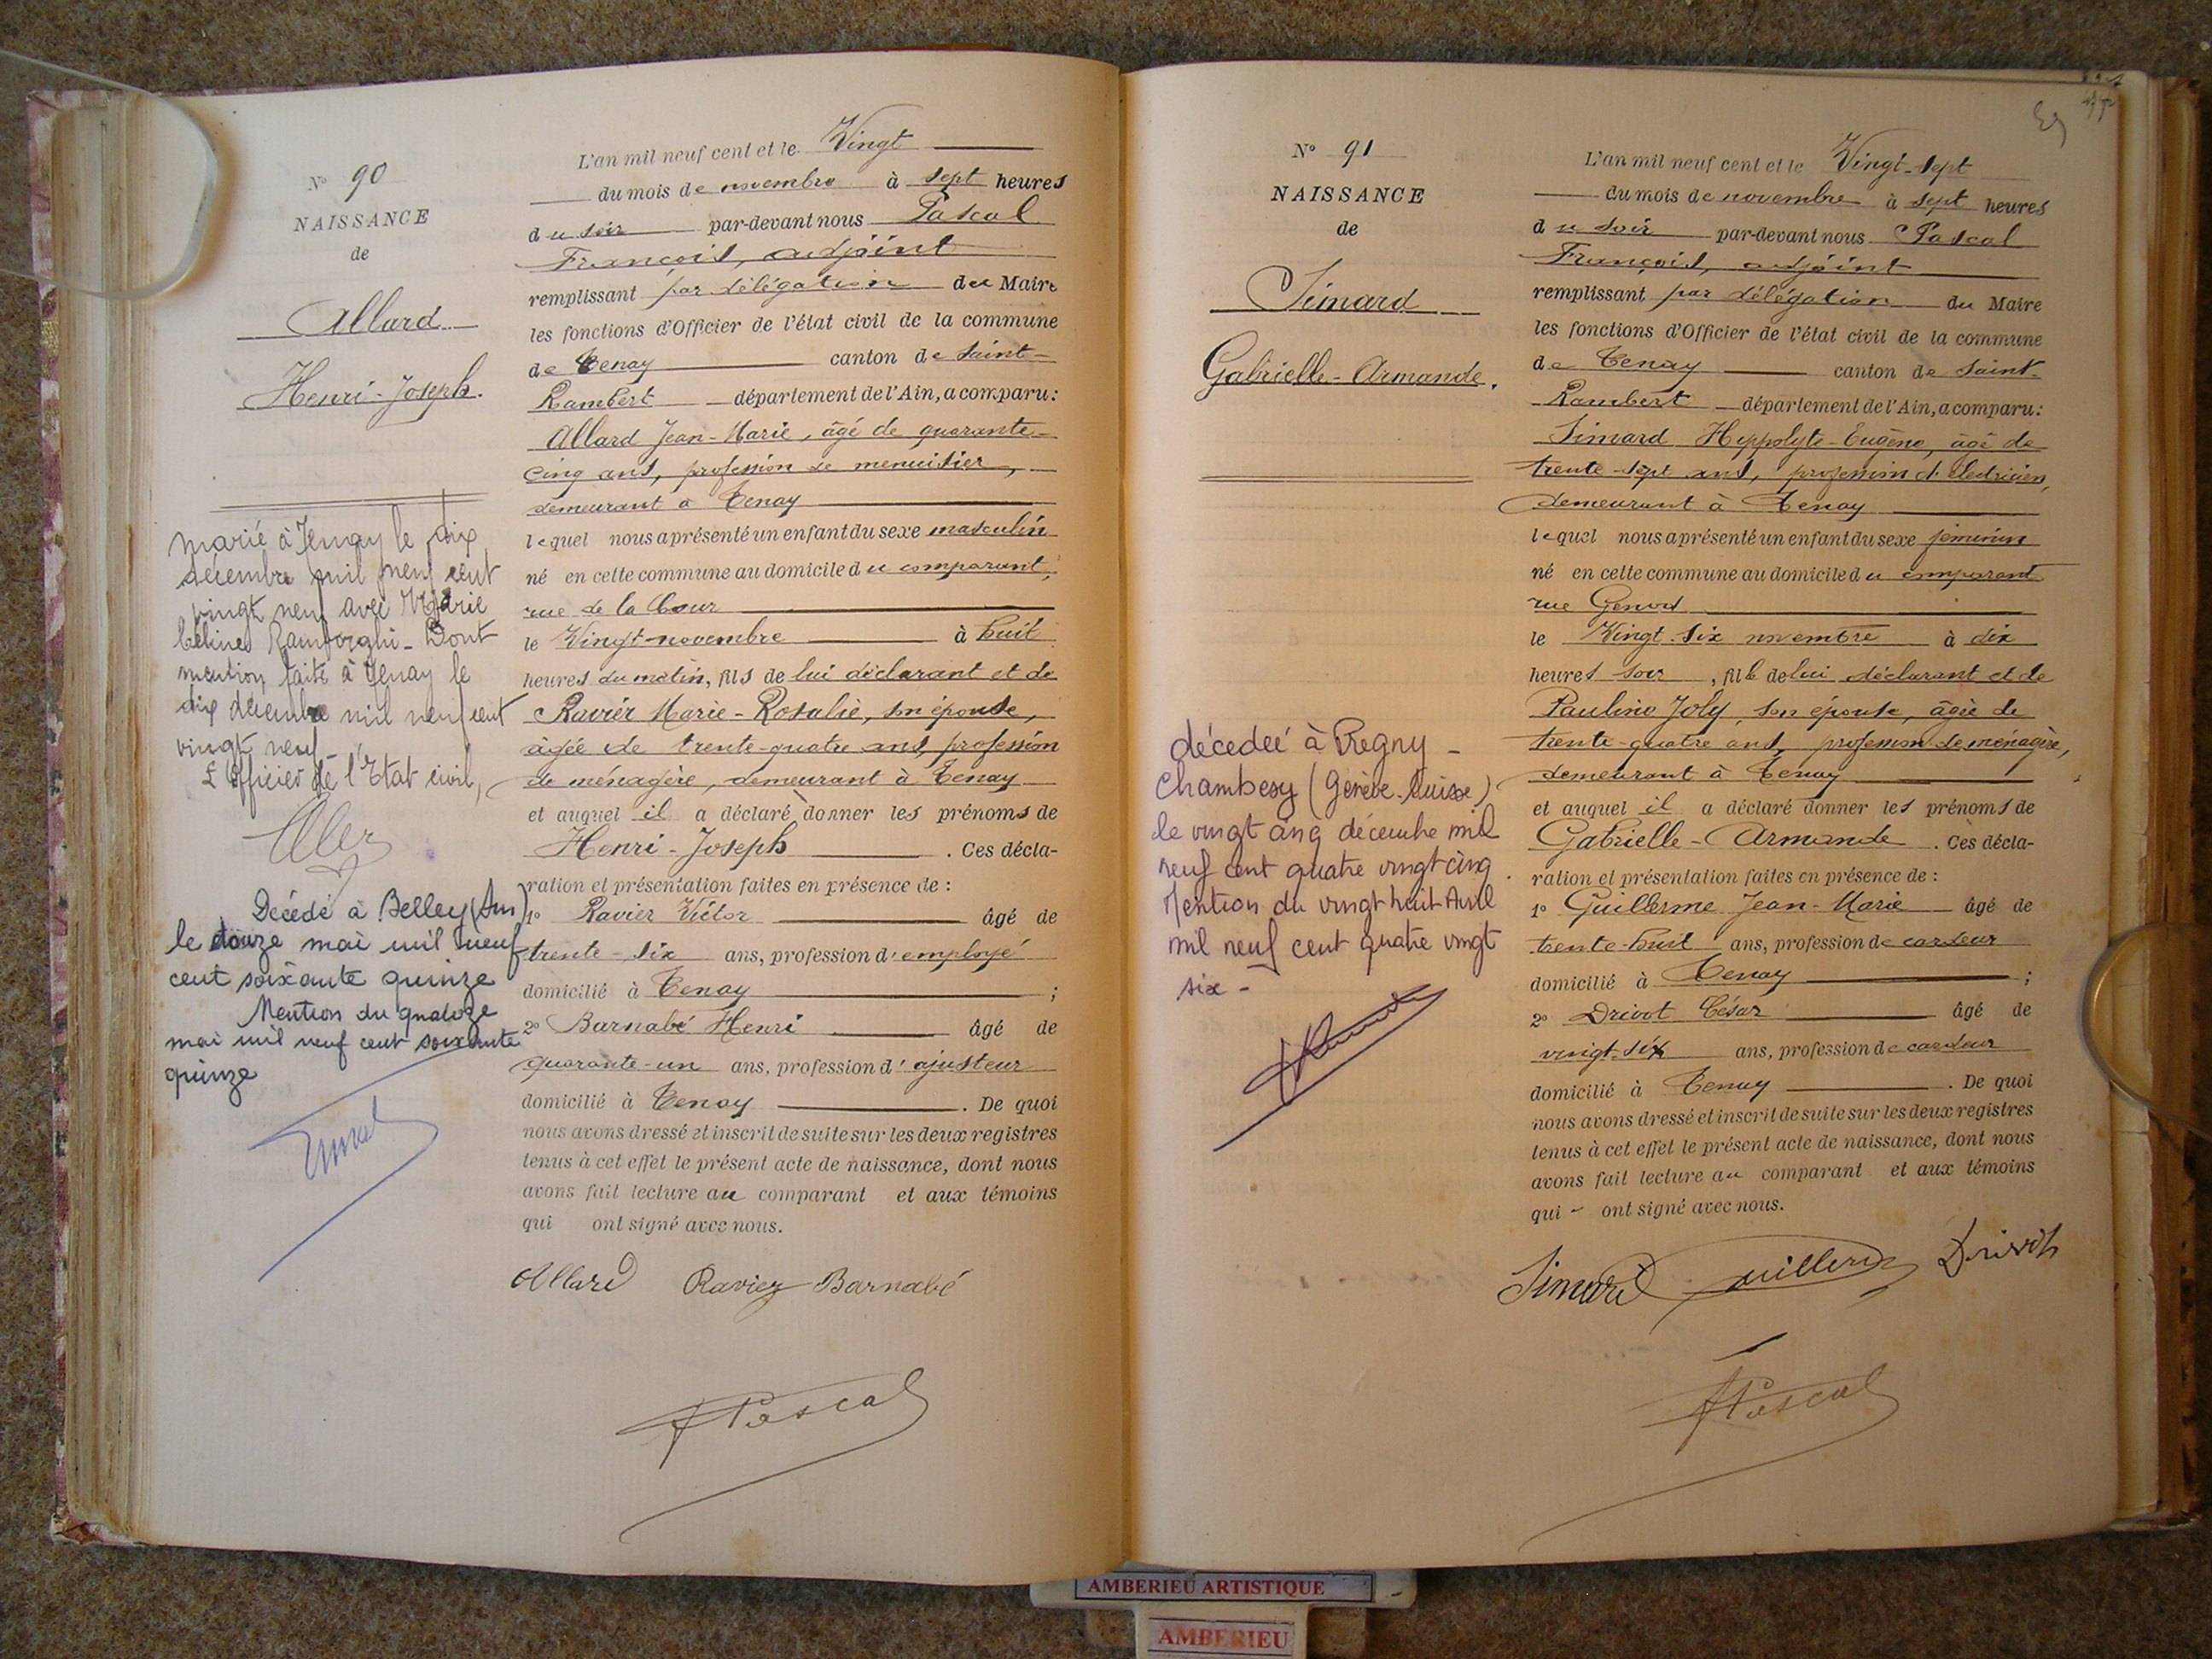 N° 90
NAISSANCE
de
Allard
Henri-Joseph.
marié à Tenay le dix
décembre mil neuf cent
vingt neuf avec Marie
Ramborghi - Dont
mention faite à Tenay le
dix décembre mil neuf cent
vingt neuf -
L'officier de l'Etat civil,
Décédé à Belley (Ain)
le douze mai mil neuf
cent soixante quinze
Mention du quatorze
mai mil neuf cent soixante
quinze
L'an mil neuf cent et le Vingt
du mois de novembre à sept heures
du soir par-devant nous Pascal
François, adjoint
remplissant par délégation du Maire
les fonctions d'Officier de l'état civil de la commune
de Tenay canton de Saint-
Rambert département de l'Ain, a comparu:
Allard Jean-Marie, âgé de quarante-
cinq ans, profession de menuisier,
demeurant à Tenay
lequel nous a présenté un enfant du sexe masculin
né en cette commune au domicile du comparant,
rue de la Cour
le Vingt novembre à huit
heures du matin, fils de lui déclarant et de
Ravier Marie-Rosalie, son épouse,
âgée de trente-quatre ans, profession
de ménagère, demeurant à Tenay
et auquel il a déclaré donner les prénoms de
Henri-Joseph. Ces décla-
ration et présentation faites en présence de :
1° Ravier Victor âgé de
trente-six ans, profession d'employé
domicilié à Tenay ;
2° Barnabé Henri âgé de
quarante-un ans, profession d'ajusteur
domicilié à Tenay. De quoi
nous avons dressé et inscrit de suite sur les deux registres
tenus à cet effet le présent acte de naissance, dont nous
avons fait lecture au comparant et aux témoins
qui ont signé avec nous.
Allard Ravier Barnabé
Pascal
N° 91
NAISSANCE
de
Simard
Gabrielle-Armande.
décedeé à Pregny -
Chambesy (Genève-Suisse)
le vingt cinq décembre mil
neuf cent quatre vingt cinq.
Mention du vingt huit Avril
mil neuf cent quatre vingt
six -
L'an mil neuf cent et le Vingt-sept
du mois de novembre à sept heures
du soir par-devant nous Pascal
François, adjoint
remplissant par délégation du Maire
les fonctions d'Officier de l'état civil de la commune
de Tenay canton de Saint-
Rambert département de l'Ain, a comparu:
Simard Hippolyte-Eugène, âgé de
trente-sept ans, profession d'électricien,
demeurant à Tenay
lequel nous a présenté un enfant du sexe féminin
né en cette commune au domicile du comparant
rue Genod
le Vingt-six novembre à dix
heures soir, fille de lui déclarant et de
Pauline Joly, son épouse, âgée de
trente-quatre ans, profession de ménagère,
demeurant à Tenay
et auquel il a déclaré donner les prénoms de
Gabrielle-Armande. Ces décla-
ration et présentation faites en présence de :
1° Guillerme Jean-Marie âgé de
trente-huit ans, profession de cardeur
domicilié à Tenay ;
2° Drivot César âgé de
vingt-six ans, profession de cardeur
domicilié à Tenay. De quoi
nous avons dressé et inscrit de suite sur les deux registres
tenus à cet effet le présent acte de naissance, dont nous
avons fait lecture au comparant et aux témoins
qui ont signé avec nous.
Simard Guillerme Drivot
Pascal
AMBERIEU ARTISTIQUE
AMBERIEU